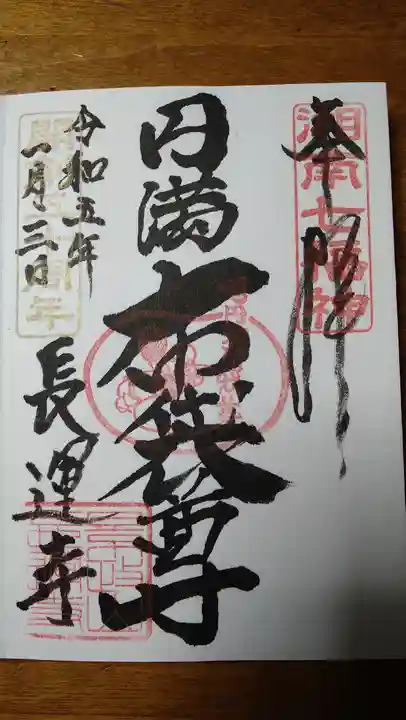 奉拝
湘南七福神
円満
布袋尊
令和五年
一月三日
長運寺